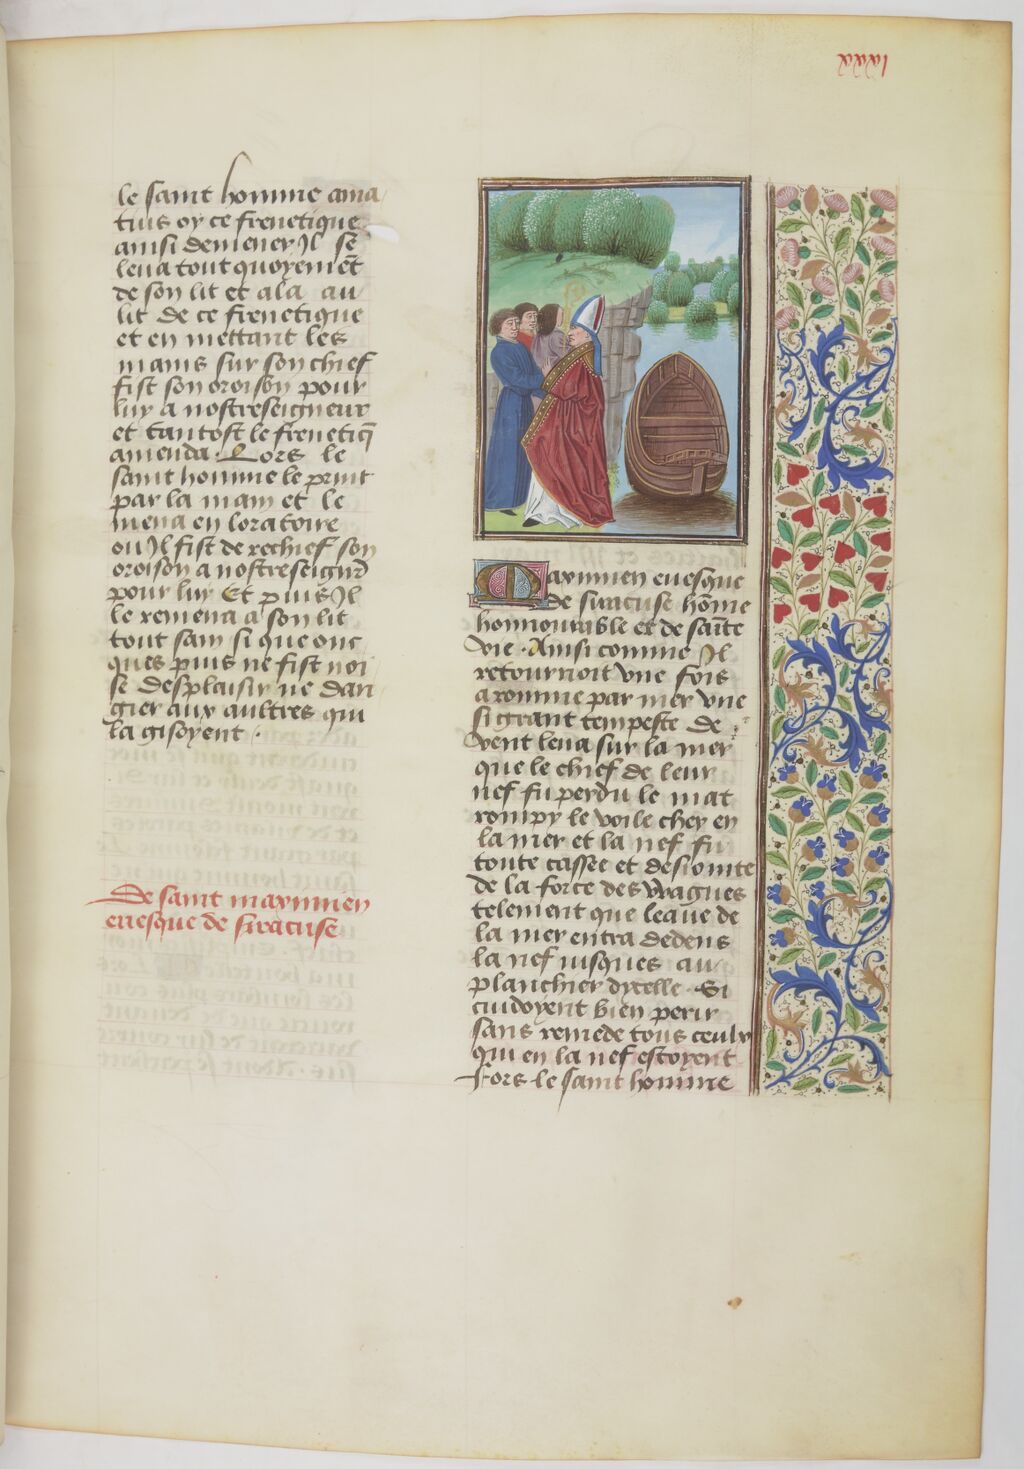 xxxxi
le saint homme ama
tius oy ce frenetique
ainsi demener Jl se
leua tout quoyemēt
de son lit et ala au
lit de ce frenetique
et en mettant les
mains sur son chief
fist son oroison pour
luy a nostreseigneur
et tantost le frenetiq̄
amenda. Lors le
saint homme le print
par la main et le
mena en loratoire
ou Jl fist de rechief son
oroison a nostreseignr̄
pour luy Et puis Jl
le remena a son lit
tout sain si que onc
ques puis ne fist noi
se desplaisir ne dan
gier aux aultres qui
la gisoyent .
De saint maximien
euesque de siracuse
Maximien euesque
de siracuse hōme
honnourable et de saīte
vie . Ainsi comme Jl
retournoit vne fois
a romme par mer vne
si grant tempeste de
vent leua sur la mer
que le chief de leur
nef fu perdu le mat
rompy le voile chey en
la mer et la nef fu
toute cassee et desiointe
de la force des vvagues
telement que leaue de
la mer entra dedens
la nef iusques au
planchier dycelle . Si
cuidoyent bien perir
sans remede tous ceulx
qui en la nef estoyent
Fors le saint homme